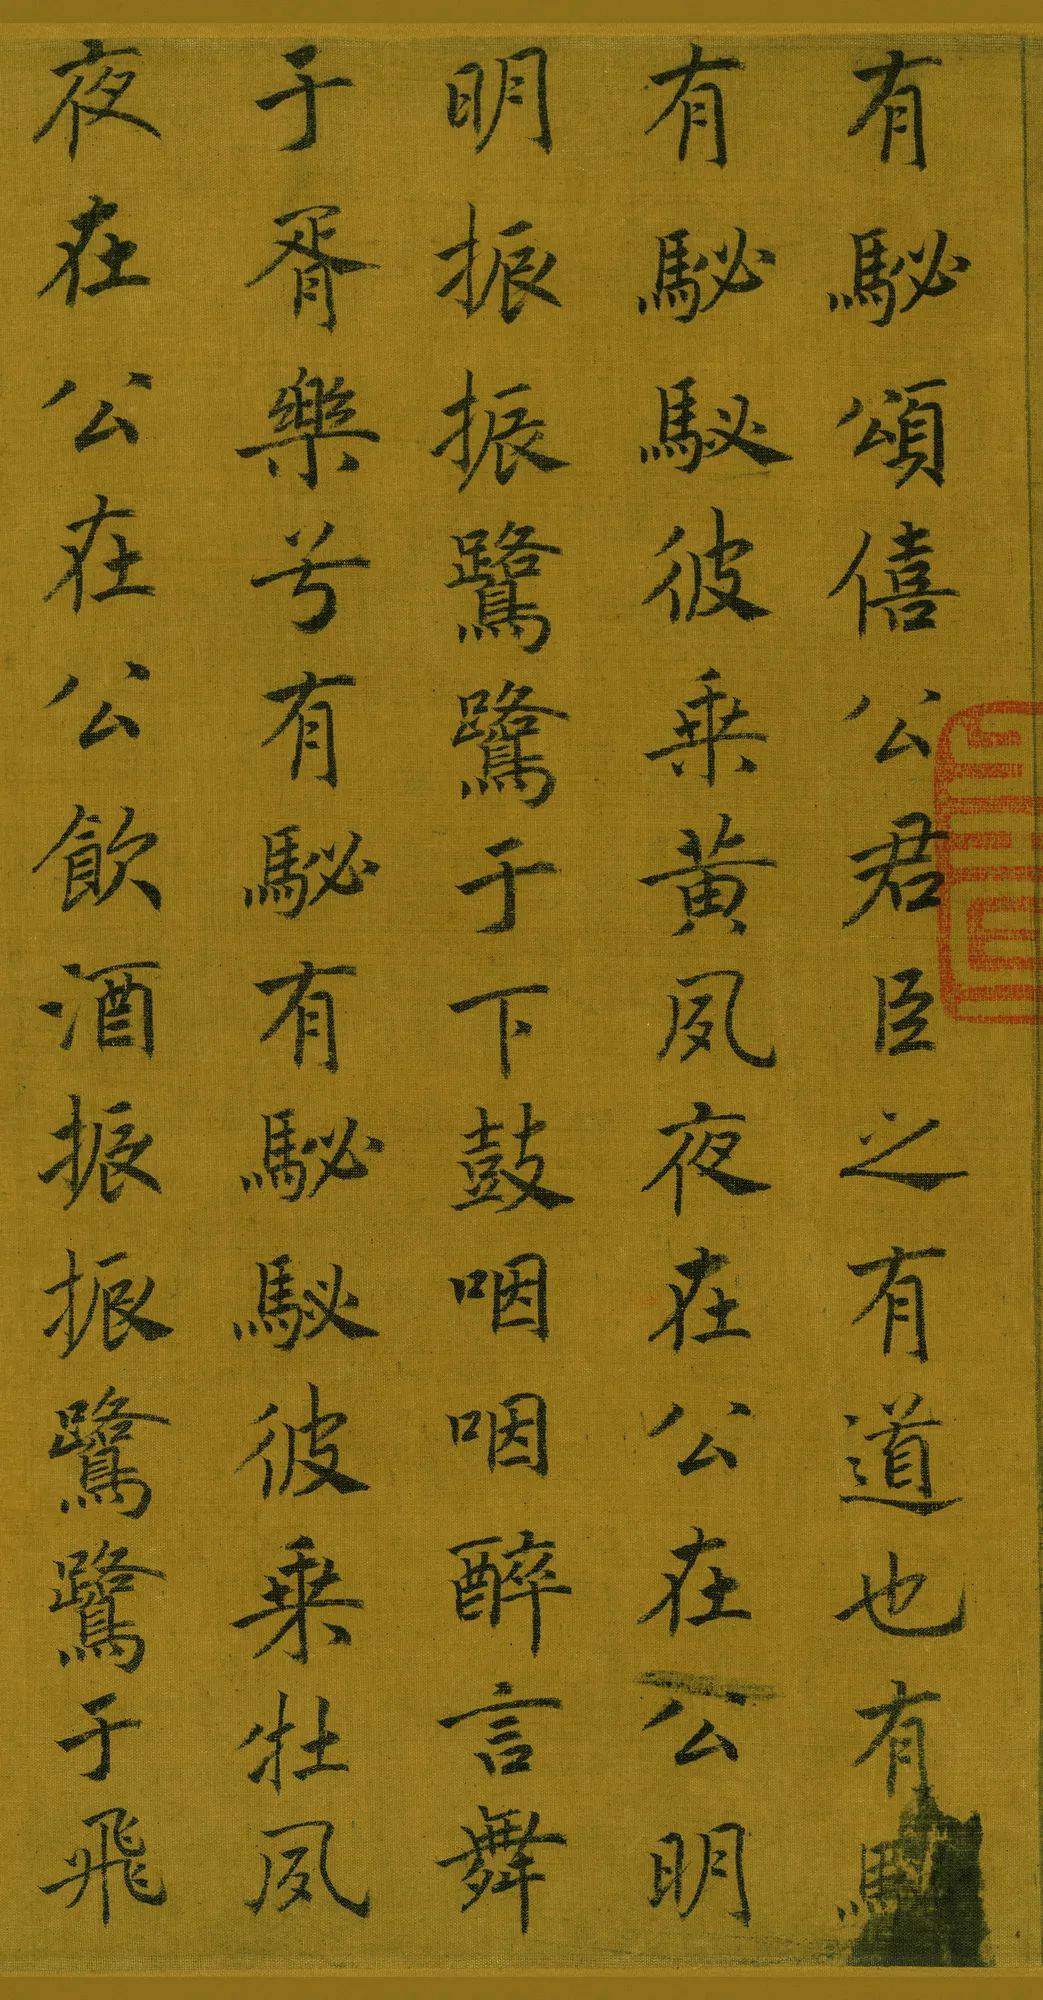 有駜頌僖公君臣之有道也有
有駜駜彼乗黃夙夜在公在公明
明振振鷺鷺于下鼓咽咽醉言舞
于胥樂兮有駜有駜駜彼乗牡夙
夜在公在公飲酒振振鷺鷺于飛